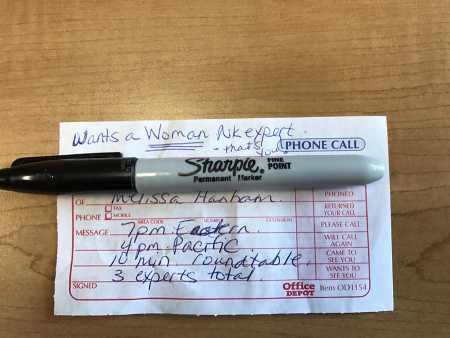 Wants a Woman NK expert.
- that's you!
PHONE CALL
Sharpie. FINE POINT
Permanent Marker
OF Melissa Hanham
PHONED
PHONE FAX
MOBILE
RETURNED YOUR CALL
AREA CODE NUMBER EXTENSION
MESSAGE 7pm Eastern.
PLEASE CALL
4pm Pacific.
WILL CALL AGAIN
10 min roundtable.
CAME TO SEE YOU
3 experts total.
WANTS TO SEE YOU
SIGNED
Office DEPOT Item OD1154